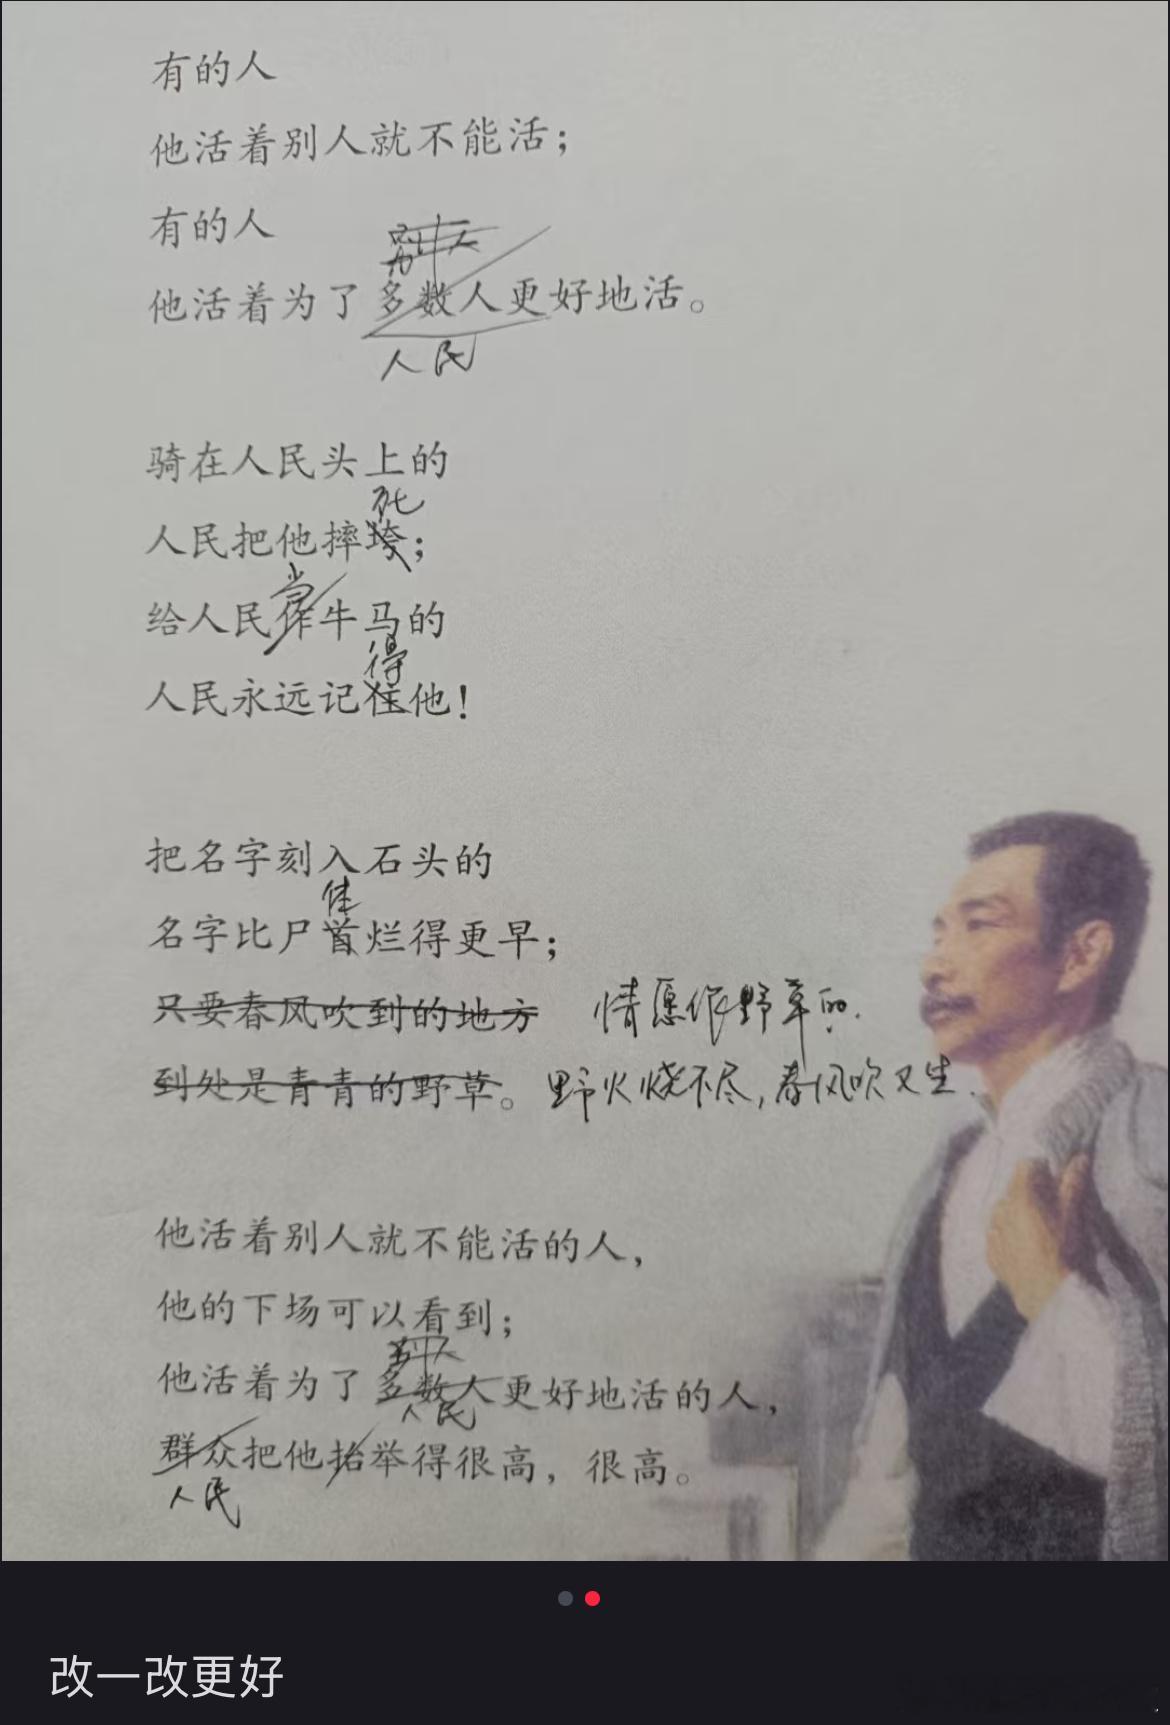 有的人
他活着别人就不能活；
有的人
别人
他活着为了多数人更好地活。
人民
骑在人民头上的
死
人民把他摔垮；
当
给人民作牛马的
得
人民永远记住他！
把名字刻入石头的
体
名字比尸首烂得更早；
只要春风吹到的地方 情愿作野草的.
到处是青青的野草。野火烧不尽，春风吹又生.
他活着别人就不能活的人，
他的下场可以看到；
别人
他活着为了多数人更好地活的人，
人民
群众把他抬举得很高，很高。
人民
改一改更好